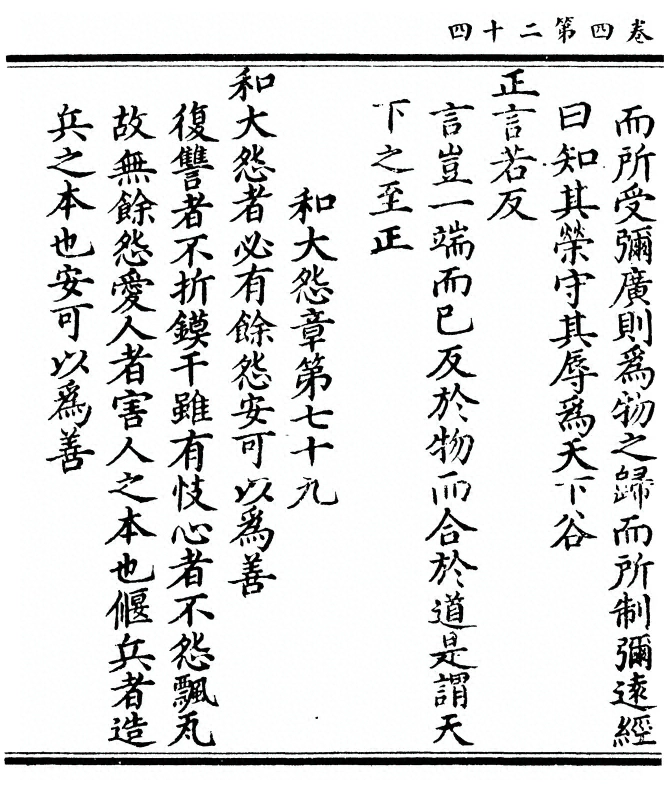 卷四第二十四
而所受彌廣則爲物之歸而所制彌遠經
曰知其榮守其辱爲天下谷
正言若反
言豈一端而已反於物而合於道是謂天
下之至正
和大怨章第七十九
和大怨者必有餘怨安可以爲善
復讐者不折鏌干雖有忮心者不怨飄瓦
故無餘怨愛人者害人之本也偃兵者造
兵之本也安可以爲善